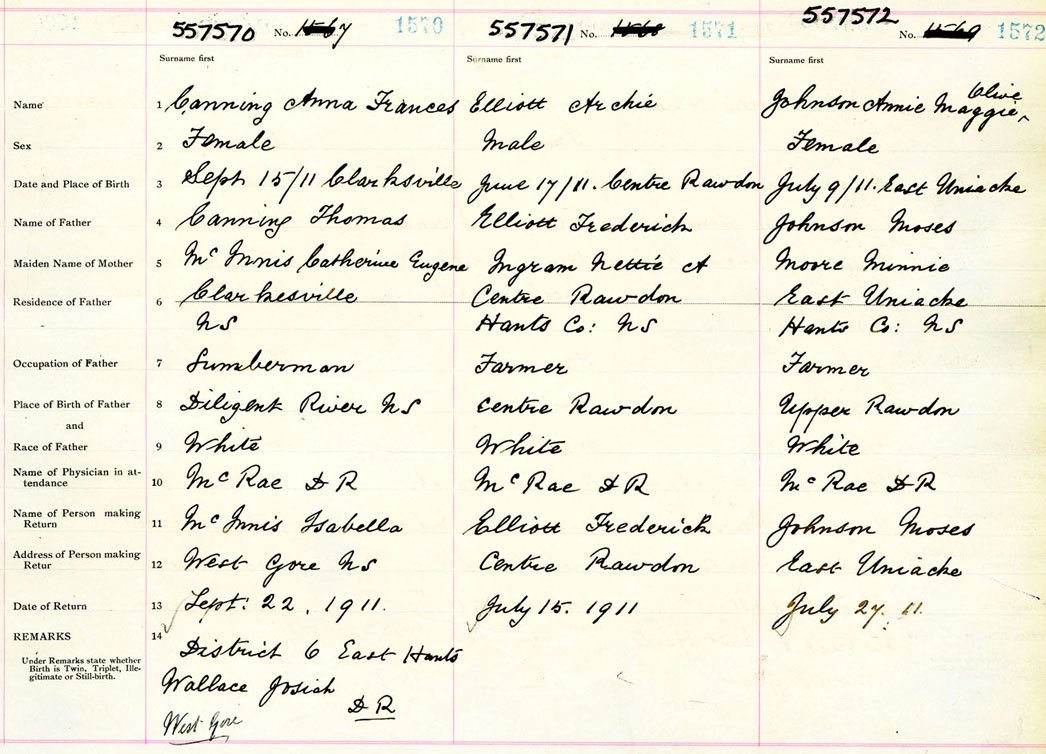 557570 No. 1567 1570 557571 No. 1568 1571 557572 No. 1569 1572
Surname first Surname first Surname first
Olive
Name 1 Canning Anna Frances Elliott Archie Johnson Annie Maggie ^
Sex 2 Female Male Female
Date and Place of Birth 3 Sept 15/11 Clarksville June 17/11. Centre Rawdon July 9/11. East Uniacke
Name of Father 4 Canning Thomas Elliott Frederick Johnson Moses
Maiden Name of Mother 5 Mc Innis Catherine Eugene Ingram Nettie A Moore Minnie
Residence of Father 6 Clarkesville Centre Rawdon East Uniacke
NS Hants Co: NS Hants Co: NS
Occupation of Father 7 Lumberman Farmer Farmer
Place of Birth of Father 8 Diligent River NS Centre Rawdon Upper Rawdon
and
Race of Father 9 White White White
Name of Physician in at-
tendance 10 Mc Rae D R Mc Rae D R Mc Rae D R
Name of Person making
Return 11 Mc Innis Isabella Elliott Frederick Johnson Moses
Address of Person making
Retur 12 West Gore NS Centre Rawdon East Uniacke
Date of Return 13 Sept: 22, 1911. July 15. 1911 July 27. 11.
REMARKS 14
Under Remarks state whether
Birth is Twin, Triplet, Ille-
gitimate or Still-birth.
District 6 East Hants
Wallace Josiah
D R
West Gore